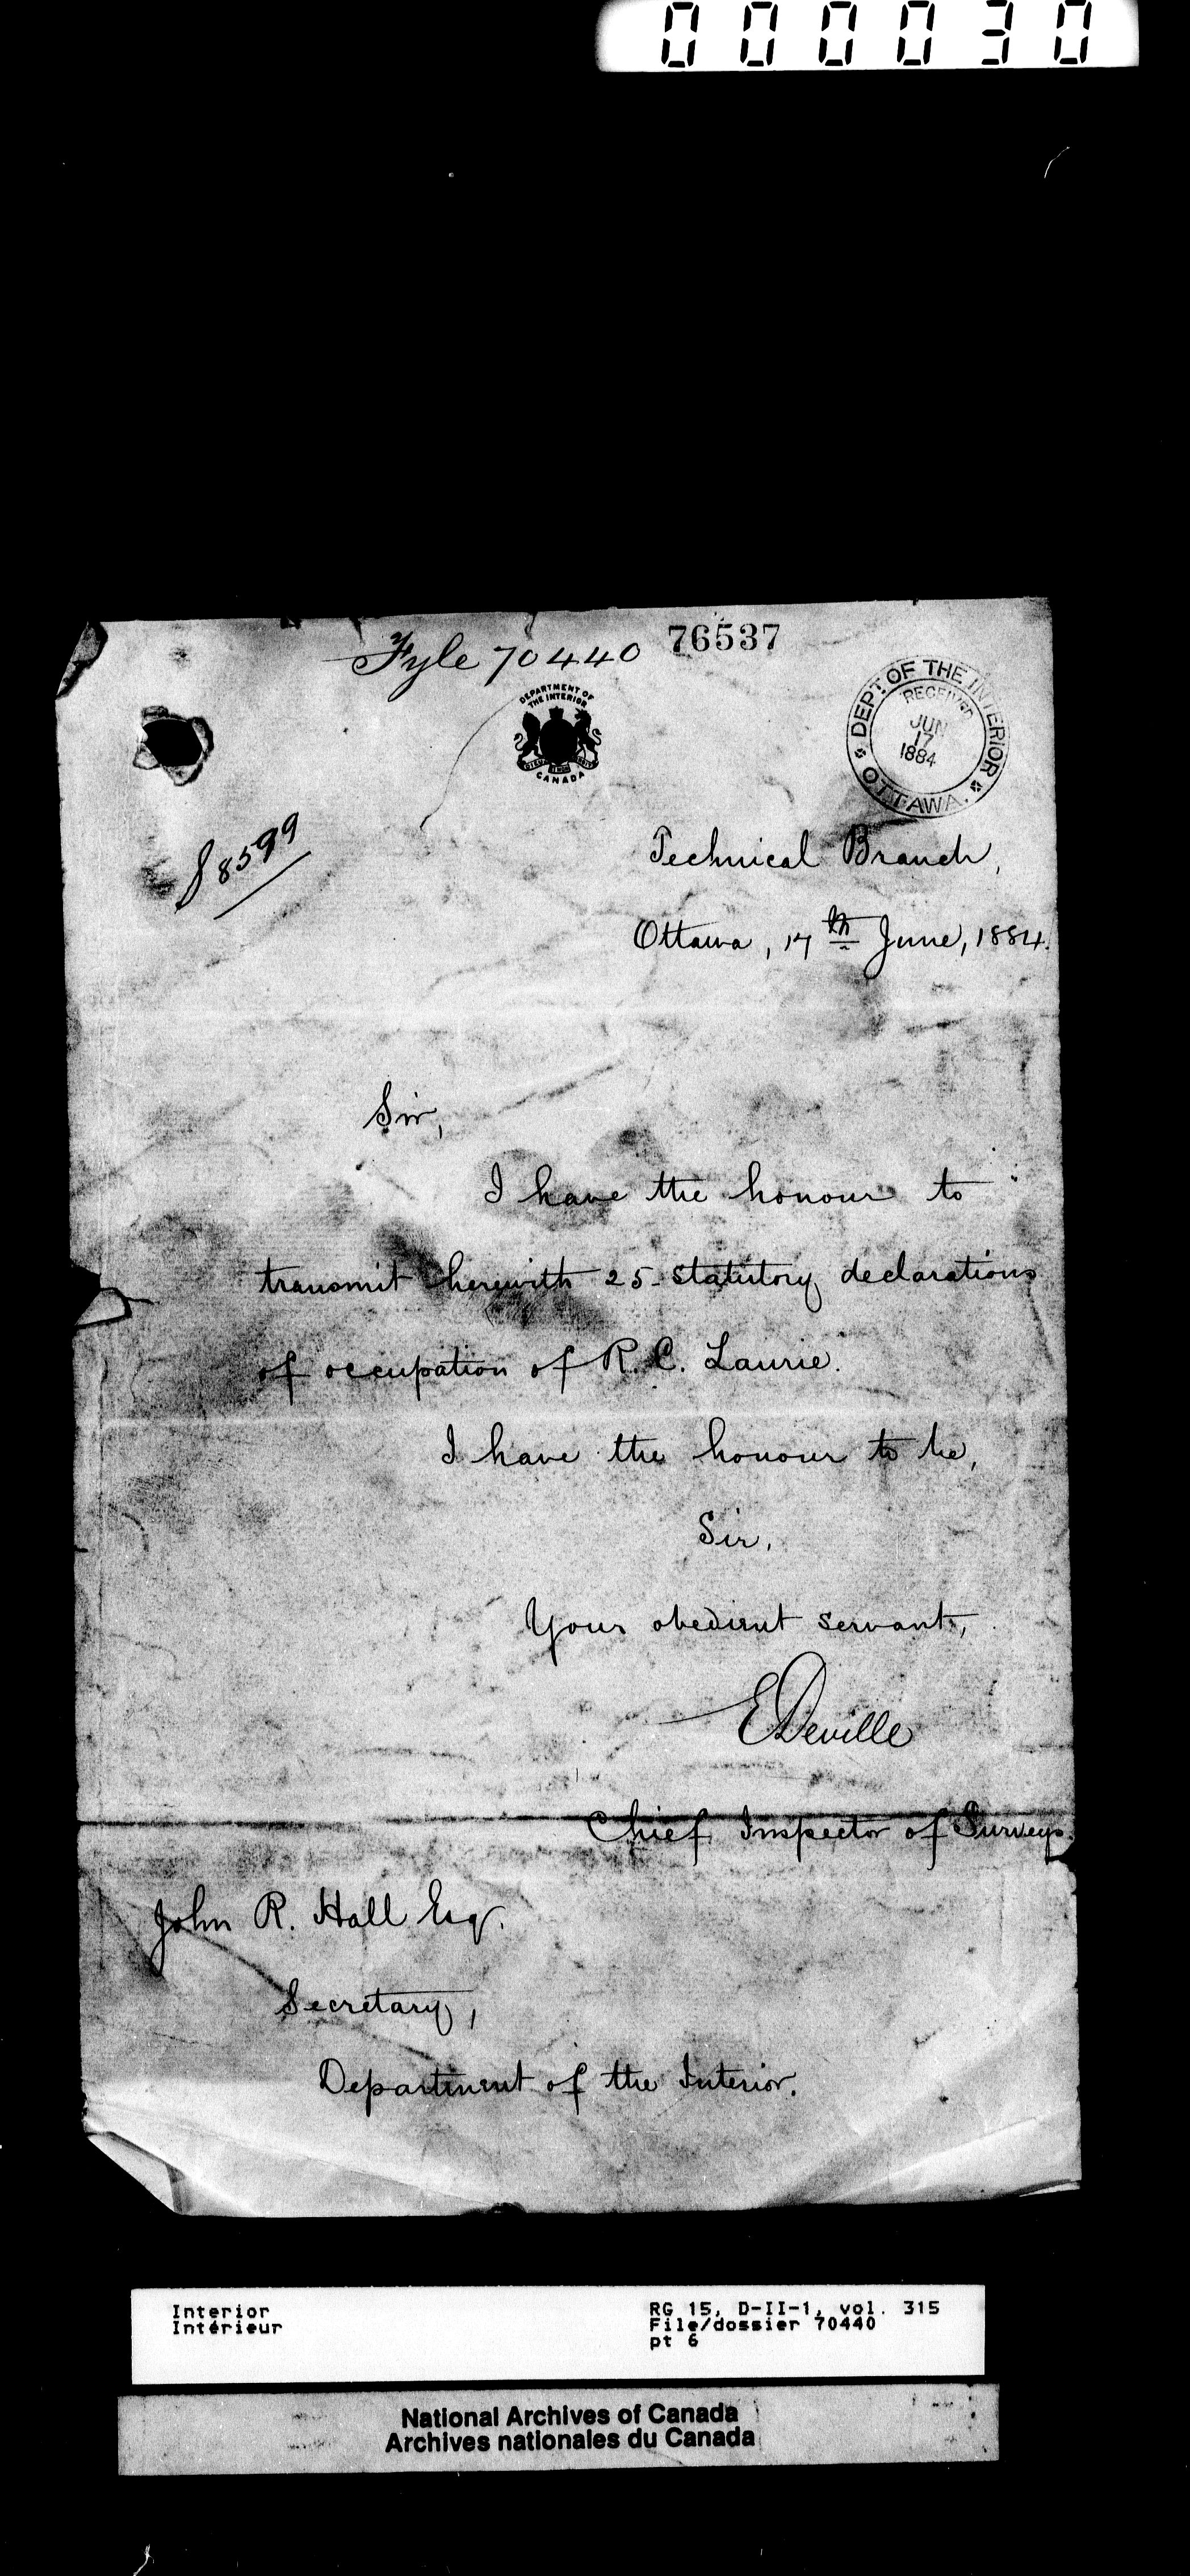 000030
Fyle 70440 76537
DEPARTMENT OF
THE INTERIOR
CANADA
DEPT OF THE INTERIOR
RECEIVED
JUN
17
1884
OTTAWA.
8599
Technical Branch,
Ottawa, 17th June, 1884.
Sir,
I have the honour to
transmit herewith 25 statutory declarations
of occupation of R. C. Laurie.
I have the honour to be,
Sir,
Your obedient servant,
E Deville
Chief Inspector of Surveys.
John R. Hall Esq.
Secretary,
Department of the Interior.
Interior
Intérieur
RG 15, D-II-1, vol. 315
File/dossier 70440
pt 6
National Archives of Canada
Archives nationales du Canada